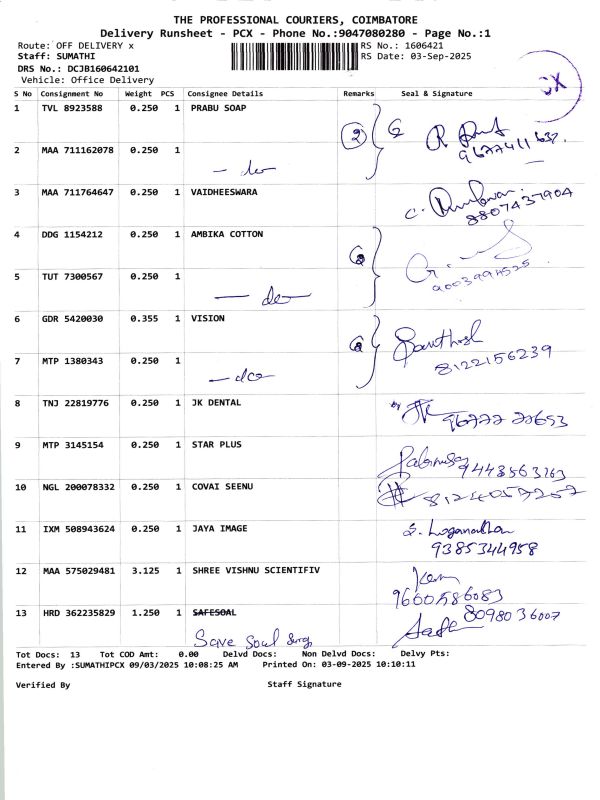 THE PROFESSIONAL COURIERS, COIMBATORE
Delivery Runsheet - PCX - Phone No.:9047080280 - Page No.:1
Route: OFF DELIVERY x RS No.: 1606421
Staff: SUMATHI RS Date: 03-Sep-2025
DRS No.: DCJB160642101
Vehicle: Office Delivery
CX
S No Consignment No Weight PCS Consignee Details Remarks Seal & Signature
1 TVL 8923588 0.250 1 PRABU SOAP
2 MAA 711162078 0.250 1
3 MAA 711764647 0.250 1 VAIDHEESWARA
8807437904
4 DDG 1154212 0.250 1 AMBIKA COTTON
5 TUT 7300567 0.250 1
9003994525
6 GDR 5420030 0.355 1 VISION
Santhosh
7 MTP 1380343 0.250 1
8122156239
8 TNJ 22819776 0.250 1 JK DENTAL
9 MTP 3145154 0.250 1 STAR PLUS
9443563263
10 NGL 200078332 0.250 1 COVAI SEENU
8124057257
11 IXM 508943624 0.250 1 JAYA IMAGE S. Loganathan
9385344958
12 MAA 575029481 3.125 1 SHREE VISHNU SCIENTIFIV
13 HRD 362235829 1.250 1 SAFESOAL 8098036007
Save Soul
Tot Docs: 13 Tot COD Amt: 0.00 Delvd Docs: Non Delvd Docs: Delvy Pts:
Entered By :SUMATHIPCX 09/03/2025 10:08:25 AM Printed On: 03-09-2025 10:10:11
Verified By Staff Signature